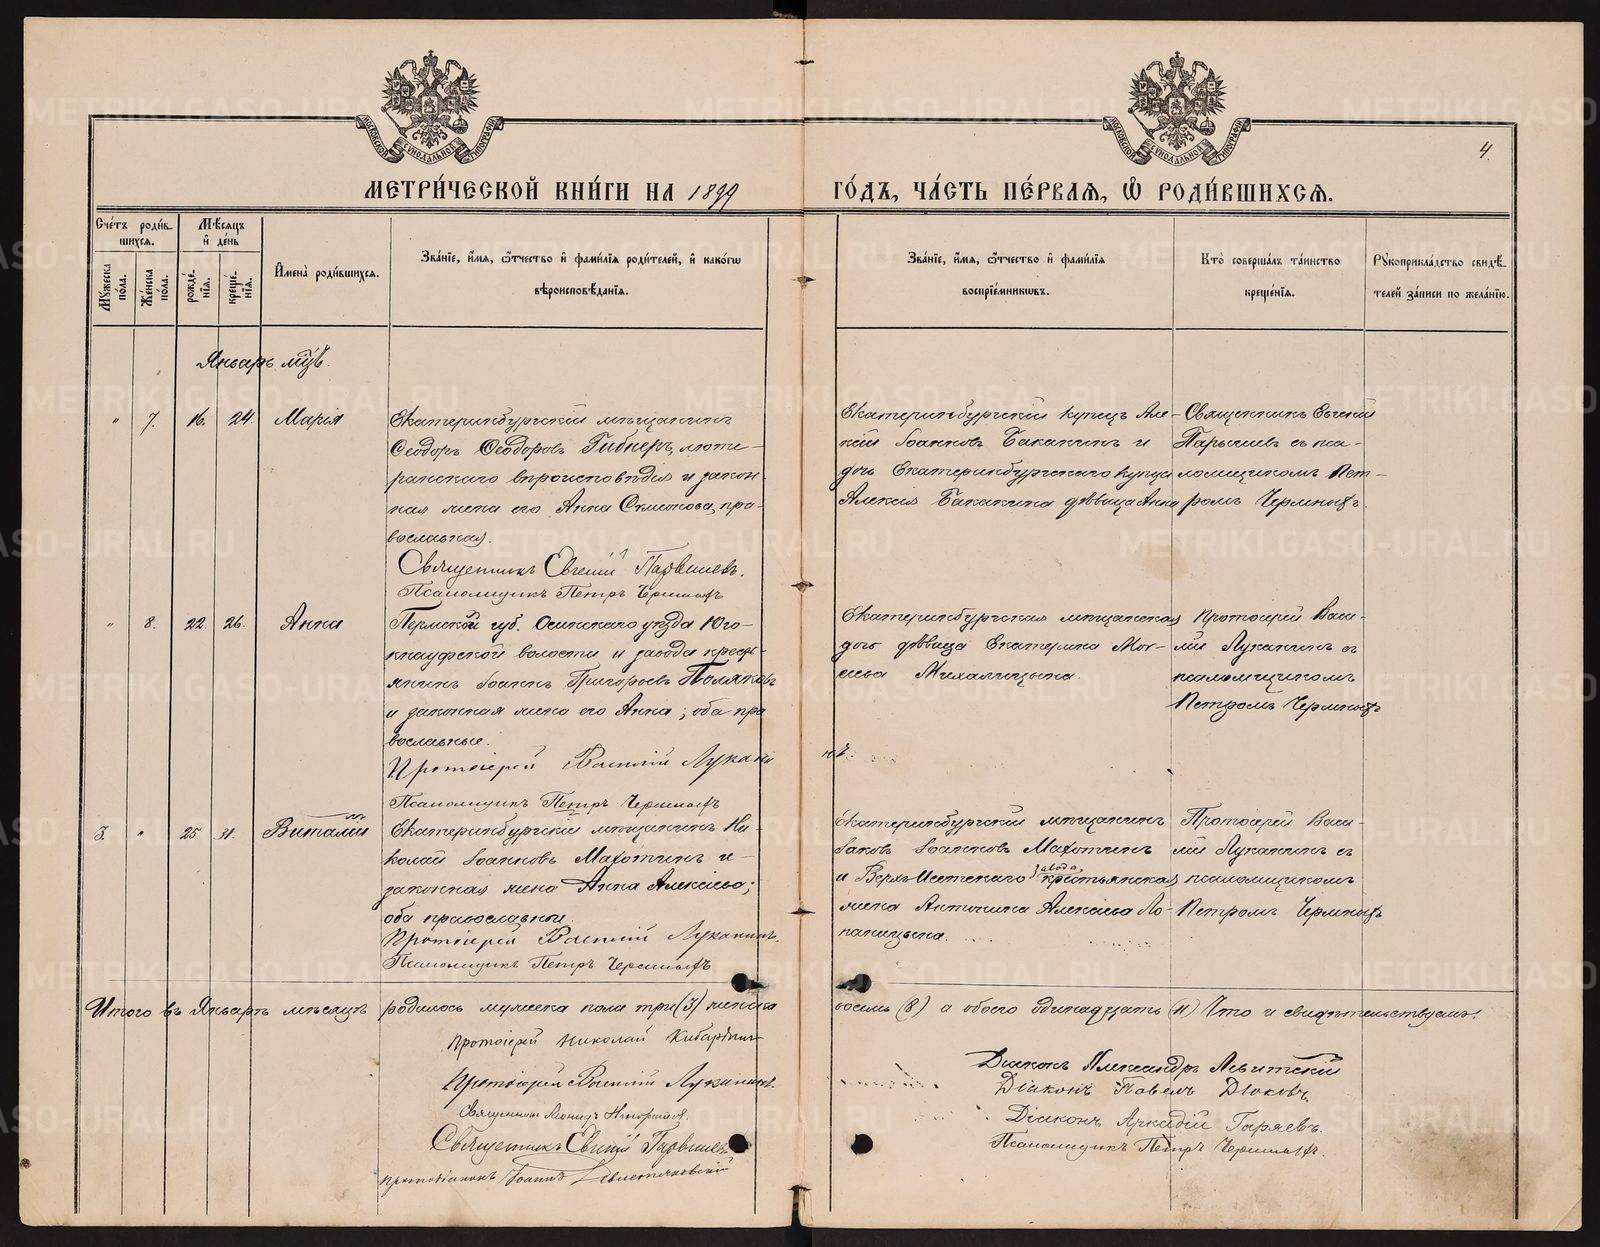 МЕТРИ́ЧЕСКОЙ КНИ́ГИ НА 1899 ГО́ДЪ, ЧА́СТЬ ПЕ́РВАЯ, Ѽ РОДИ́ВШИХСЯ.
4.
Сче́тъ роди́в-
шихся.
Мꙋ́жеска по́ла.
Же́нска по́ла.
Мѣ́сяцъ
и҆ де́нь
рожде́-
нїя.
креще́-
нїя.
И҆мена̀ роди́вшихся.
Зва́нїе, и҆́мя, ѻ҆́тчество и҆ фами́лїя роди́телей, и҆ како́гѡ
вѣроисповѣ́данїя.
Зва́нїе, и҆́мя, ѻ҆́тчество и҆ фами́лїя
воспрїе́мникѡвъ.
Кто̀ соверша́лъ та́инство
креще́нїя.
Рꙋкоприкла́дство свидѣ́-
телей за́писи по жела́нїю.
Январь мцъ.
" 7. 16. 24. Марія
Екатеринбургскій мѣщанинъ
Ѳеодоръ Ѳеодоровъ Гибнеръ, люте-
ранскаго вѣроисповѣданія и закон-
ная жена его Анна Симонова, пра-
вославная.
Священникъ Евгеній Парышевъ.
Псаломщикъ Петръ Черемныхъ
Екатеринбургскій купецъ Але-
ксій Іоанновъ Бакакинъ и
дочь Екатеринбургскаго купца
Алексія Бакакина дѣвица Анна
Священникъ Евгеній
Парышевъ съ пса-
ломщикомъ Пет-
ромъ Черемныхъ
" 8. 22. 26. Анна
Пермской губ. Осинскаго уѣзда Юго-
кнауфской волости и завода кресть-
янинъ Іоаннъ Григорьевъ Поляковъ
и законная жена его Анна; оба пра
вославные.
Протоіерей Василій Луканинъ.
Псаломщикъ Петръ Черемныхъ
Екатеринбургская мѣщанская
дочь дѣвица Екатерина
Михалицына.
Протоіерей Васи-
лій Луканинъ съ
псаломщикомъ
Петромъ Черемныхъ
3. " 25 31. Виталій
Екатеринбургскій мѣщанинъ Ни-
колай Іоанновъ Махоткинъ и
законная жена Анна Алексіева;
оба православные.
Протоіерей Василій Луканинъ.
Псаломщикъ Петръ Черемныхъ
Екатеринбургскій мѣщанинъ
Іаковъ Іоанновъ Махоткинъ
и Верхъ-Исетскаго завода крестьянская
жена Антонина Алексіева Ло-
паницына.
Протоіерей Васи-
лій Луканинъ съ
псаломщикомъ
Петромъ Черемныхъ
Итого въ Январѣ мѣсяцѣ родилось мужеска пола три (3) женска восемь (8) а обоего одинадцать (11) Что и свидѣтельствуемъ:
Протоіерей Николай Кибардинъ
Протоіерей Василій Луканинъ.
Священникъ Леонидъ
Священникъ Евгеній Парышевъ
Протодіаконъ Іоаннъ
Діаконъ Александръ Левитскій
Діаконъ Павелъ Дюковъ.
Діаконъ Аркадій Гаряевъ.
Псаломщикъ Петръ Черемныхъ.
METRIKI.GASO-URAL.RU